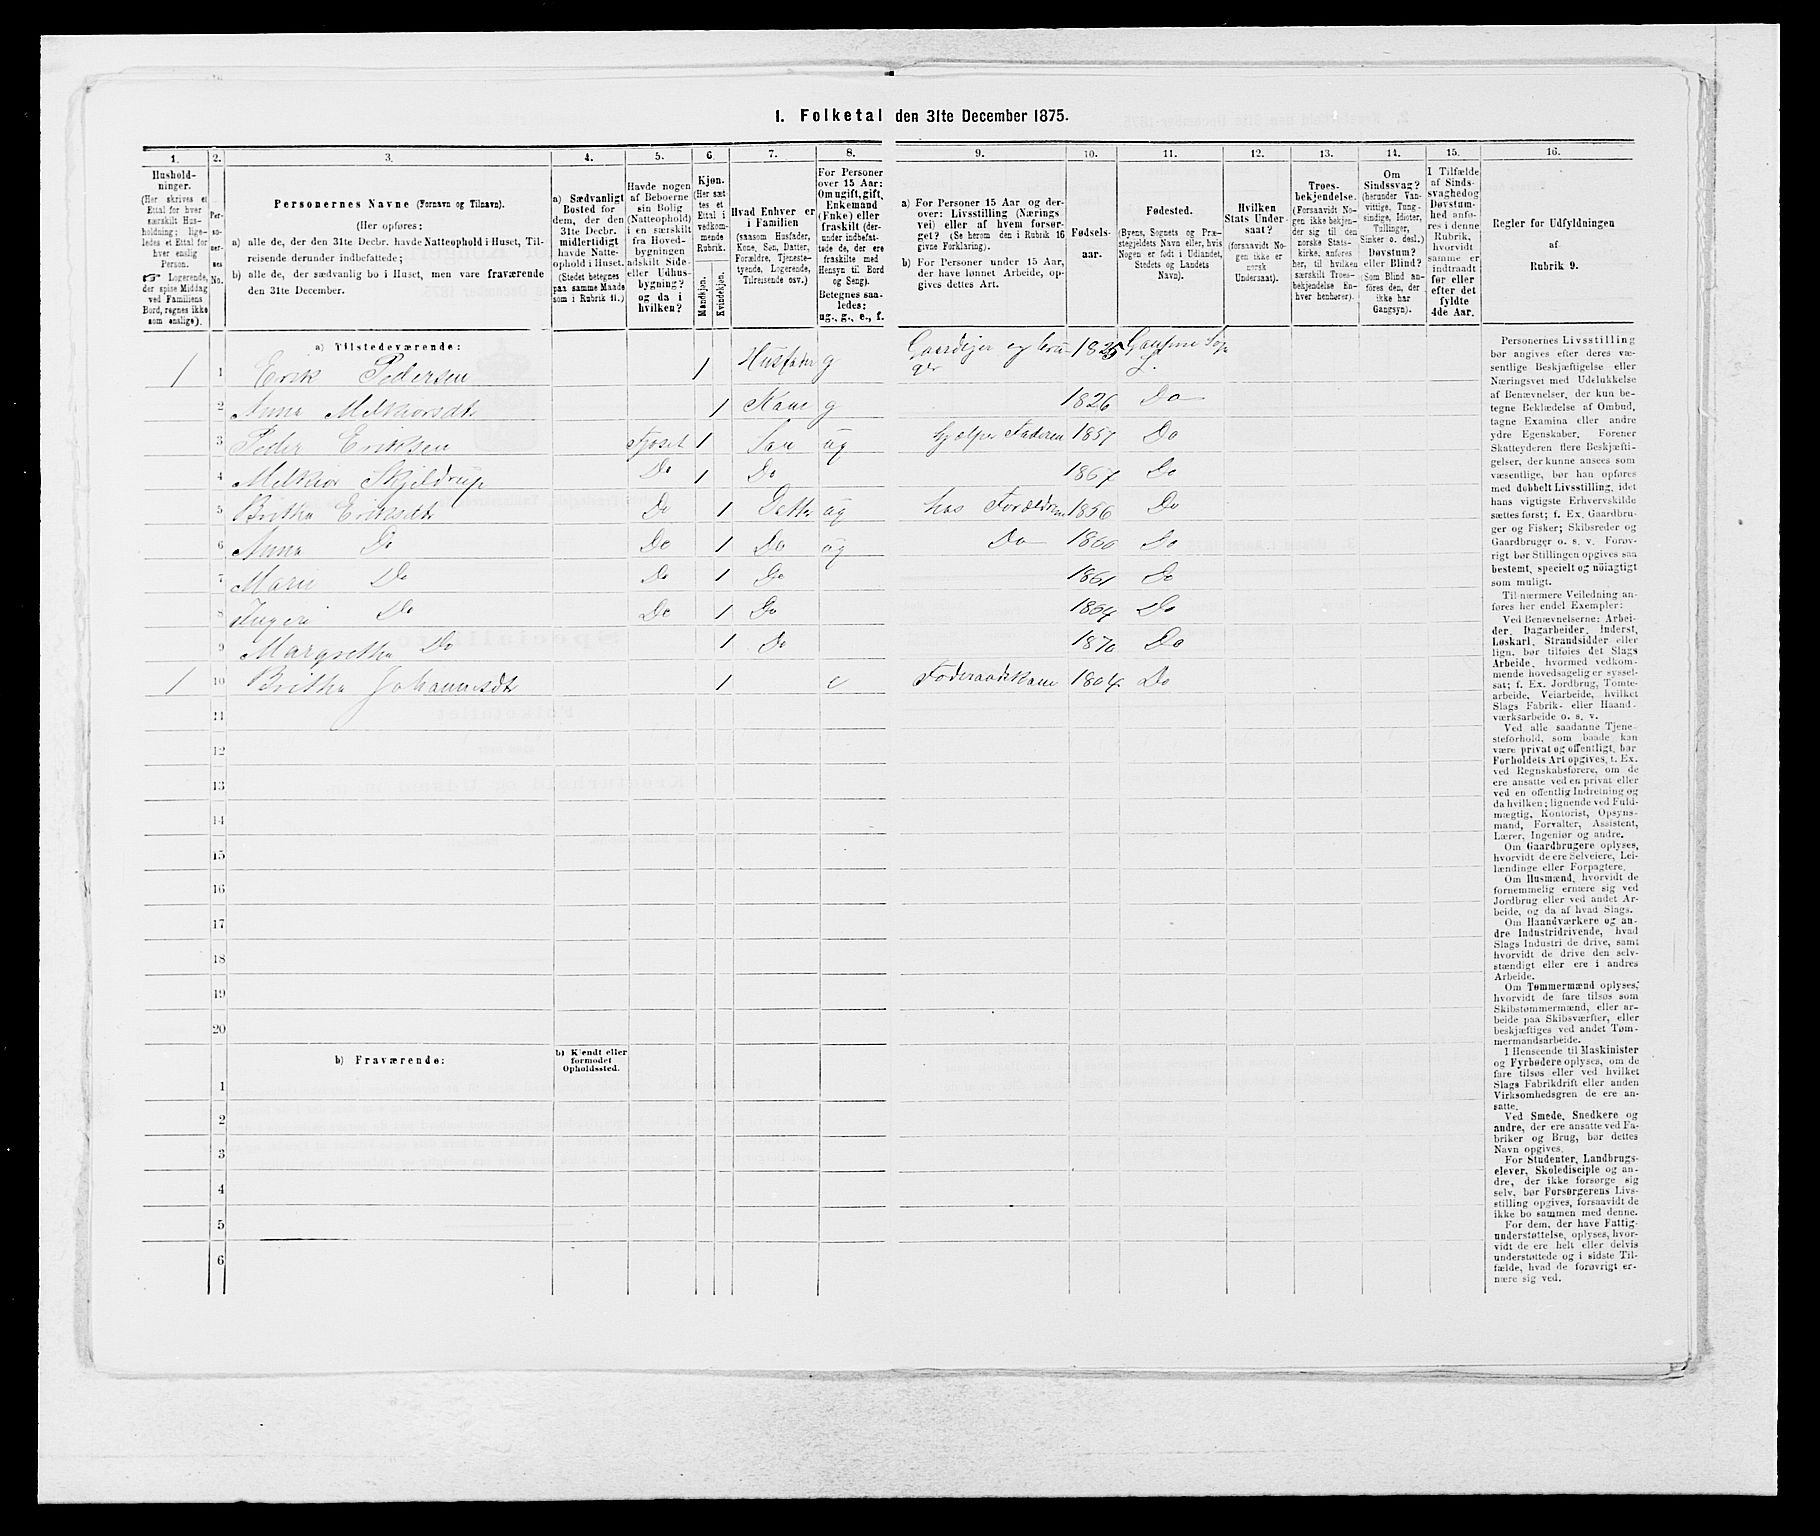 1. Folketal den 31te December 1875.
1. 2. 3. 4. 5. 6. 7. 8. 9. 10. 11. 12. 13. 14. 15. 16.
Hushold-
ninger.
(Her skrives et
Ettal for hver
særskilt Hus-
holdning; lige-
ledes et Ettal for
hver enslig
Person.
☞ Logerende,
der spise Middag
ved Familiens
Bord, regnes ikke
som enslige).
Per-
so-
ner-
nes
No.
Personernes Navne (Fornavn og Tilnavn).
(Her opføres:
a) alle de, der den 31te Decbr. havde Natteophold i Huset, Til-
reisende derunder indbefattede;
b) alle de, der sædvanlig bo i Huset, men vare fraværende
den 31te December.
a) Sædvanligt
Bosted for
dem, der den
31te Decbr.
midlertidigt
havde Natte-
ophold i Huset.
(Stedet betegnes
paa samme Maade
som i Rubrik 11.)
Havde nogen
af Beboerne
sin Bolig
(Natteophold)
i en særskilt
fra Hoved-
bygningen
adskilt Side-
eller Udhus-
bygning?
og da i
hvilken?
Kjøn.
(Her sæt
tes et
Ettal i
vedkom-
mende
Rubrik.
Mandkjøn.
Kvindekjøn.
Hvad Enhver er
i Familien
(saasom Husfader,
Kone, Søn, Datter,
Forældre, Tjeneste-
tyende, Logerende,
Tilreisende osv.)
For Personer
over 15 Aar:
Om ugift, gift,
Enkemand
(Enke) eller
fraskilt (der-
under indbefat-
tede de, der ere
fraskilte med
Hensyn til Bord
og Seng).
Betegnes saa-
ledes:
ug., g., e., f.
a) For Personer 15 Aar og der-
over: Livsstilling (Nærings
vei) eller af hvem forsør-
get? (Se herom den i Rubrik 16
givne Forklaring).
b) For Personer under 15 Aar,
der have lønnet Arbeide, op-
gives dettes Art.
Fødsels-
aar.
Fødested.
(Byens, Sognets og Præ-
stegjeldets Navn eller, hvis
Nogen er født i Udlandet,
Stedets og Landets
Navn).
Hvilken
Stats Under-
saat?
(forsaavidt No-
gen ikke er
norsk
Undersaat).
Troes-
bekjendelse.
(Forsaavidt No-
gen ikke bekjen-
der sig til den
norske Stats-
kirke, anføres
her, til hvilken
særskilt Troes-
bekjendelse En-
hver henhører).
Om
Sindssvag?
(herunder Van-
vittige, Tung-
sindige, Idioter,
Tullinger,
Sinker o. desl.)
Døvstum?
eller Blind?
(Som Blind an-
føres den, der
ikke har
Gangsyn).
I Tilfælde
af Sinds-
svaghed og
Døvstum-
hed anfø-
res i denne
Rubrik,
hvorvidt
samme er
indtraadt
før eller
efter det
fyldte
4de Aar.
Regler for Udfyldningen
af
Rubrik 9.
a) Tilstedeværende:
1 1 Erik Pedersen 1 Husfader g Gaardejer og bru- 1825 Sogn
ger
2 Anna Melkiorsdt 1 Kone g 1826 Do
3 Peder Eriksen Fjøset 1 Søn ug hjelper Faderen 1857 Do
4 Melkior Skjeldrup Do 1 Do 1867 Do
5 Britha Eriksdt Do 1 Datter ug hos Forældrene 1856 Do
6 Anna Do Do 1 Do ug Do 1860 Do
7 Mari Do Do 1 Do 1861 Do
8 Ingeri Do Do 1 Do 1864 Do
9 Margretha Do 1 Do 1870 Do
1 10 Britha Johannesdt 1 e Føderaadskone 1804 Do
11
12
13
14
15
16
17
18
19
20
b) Fraværende:
b) Kjendt eller
formodet
Opholdssted.
1
2
3
4
5
6
Personernes Livsstilling
bør angives efter deres væ-
sentlige Beskjæftigelse eller
Næringsvei med Udelukkelse
af Benævnelser, der kun be-
tegne Beklædelse af Ombud,
tagne Examina eller andre
ydre Egenskaber. Forener
Skatteyderen flere Beskjæfti-
gelser, der kunne ansees som
væsentlige, bør han opføres
med dobbelt Livsstilling, idet
hans vigtigste Erhvervskilde
sættes først; f. Ex. Gaardbru-
ger og Fisker; Skibsreder og
Gaardbruger o. s. v. Forøv-
rigt bør Stillingen opgives saa
bestemt, specielt og nøiagtigt
som muligt.
Til nærmere Veiledning an-
føres her endel Exempler:
Ved Benævnelserne: Arbei-
der, Dagarbeider, Inderst,
Løskarl, Strandsidder eller
lign. bør tilføies det Slags
Arbeide, hvormed vedkom-
mende hovedsagelig er syssel-
sat; f. Ex. Jordbrug, Tomte-
arbeide, Veiarbeide, hvilket
Slags Fabrik- eller Haand-
værksarbeide o. s. v.
Ved alle saadanne Tjene-
steforhold, som baade kan
være privat og offentligt, bør
Forholdets Art opgives, t. Ex.
ved Regnskabsførere, om de
ere ansatte ved en privat eller
ved en offentlig Indretning og
da hvilken; lignende ved Fuld-
mægtig, Kontorist, Opsyns-
mand, Forvalter, Assistent,
Lærer, Ingeniør og andre.
Om Gaardbrugere oplyses,
hvorvidt de ere Selveiere, Lei-
lændinge eller Forpagtere.
Om Husmænd, hvorvidt de
fornemmelig ernære sig ved
Jordbrug eller ved andet Ar-
beide, og da af hvad Slags.
Om Haandværkere og an-
dre Industridrivende, hvad
Slags Industri de drive, samt
hvorvidt de drive den selv-
stændigt eller ere i andres
Arbeide.
Om Tømmermænd oplyses,
hvorvidt de fare tilsøs som
Skibstømmermænd, eller ar-
beide paa Skibsværfter, eller
beskjæftiges ved andet Tøm-
mermandsarbeide.
I Henseende til Maskinister
og Fyrbødere oplyses, om de
fare tilsøs eller ved hvilket
Slags Fabrikdrift eller anden
Virksomhedsgren de ere an-
satte.
Ved Smede, Snedkere og
andre, der ere ansatte ved Fa-
briker og Brug, bør dettes
Navn opgives.
For Studenter, Landbrugs-
elever, Skoledisciple og an-
dre, der ikke forsørge sig
selv, bør Forsørgerens Livs-
stilling opgives, forsaavidt de
ikke bo sammen med denne.
For dem, der have Fattig-
understøttelse, oplyses, hvor-
vidt de ere helt eller delvis
understøttede og i sidste Til-
fælde, hvad de forøvrigt er-
nære sig ved.